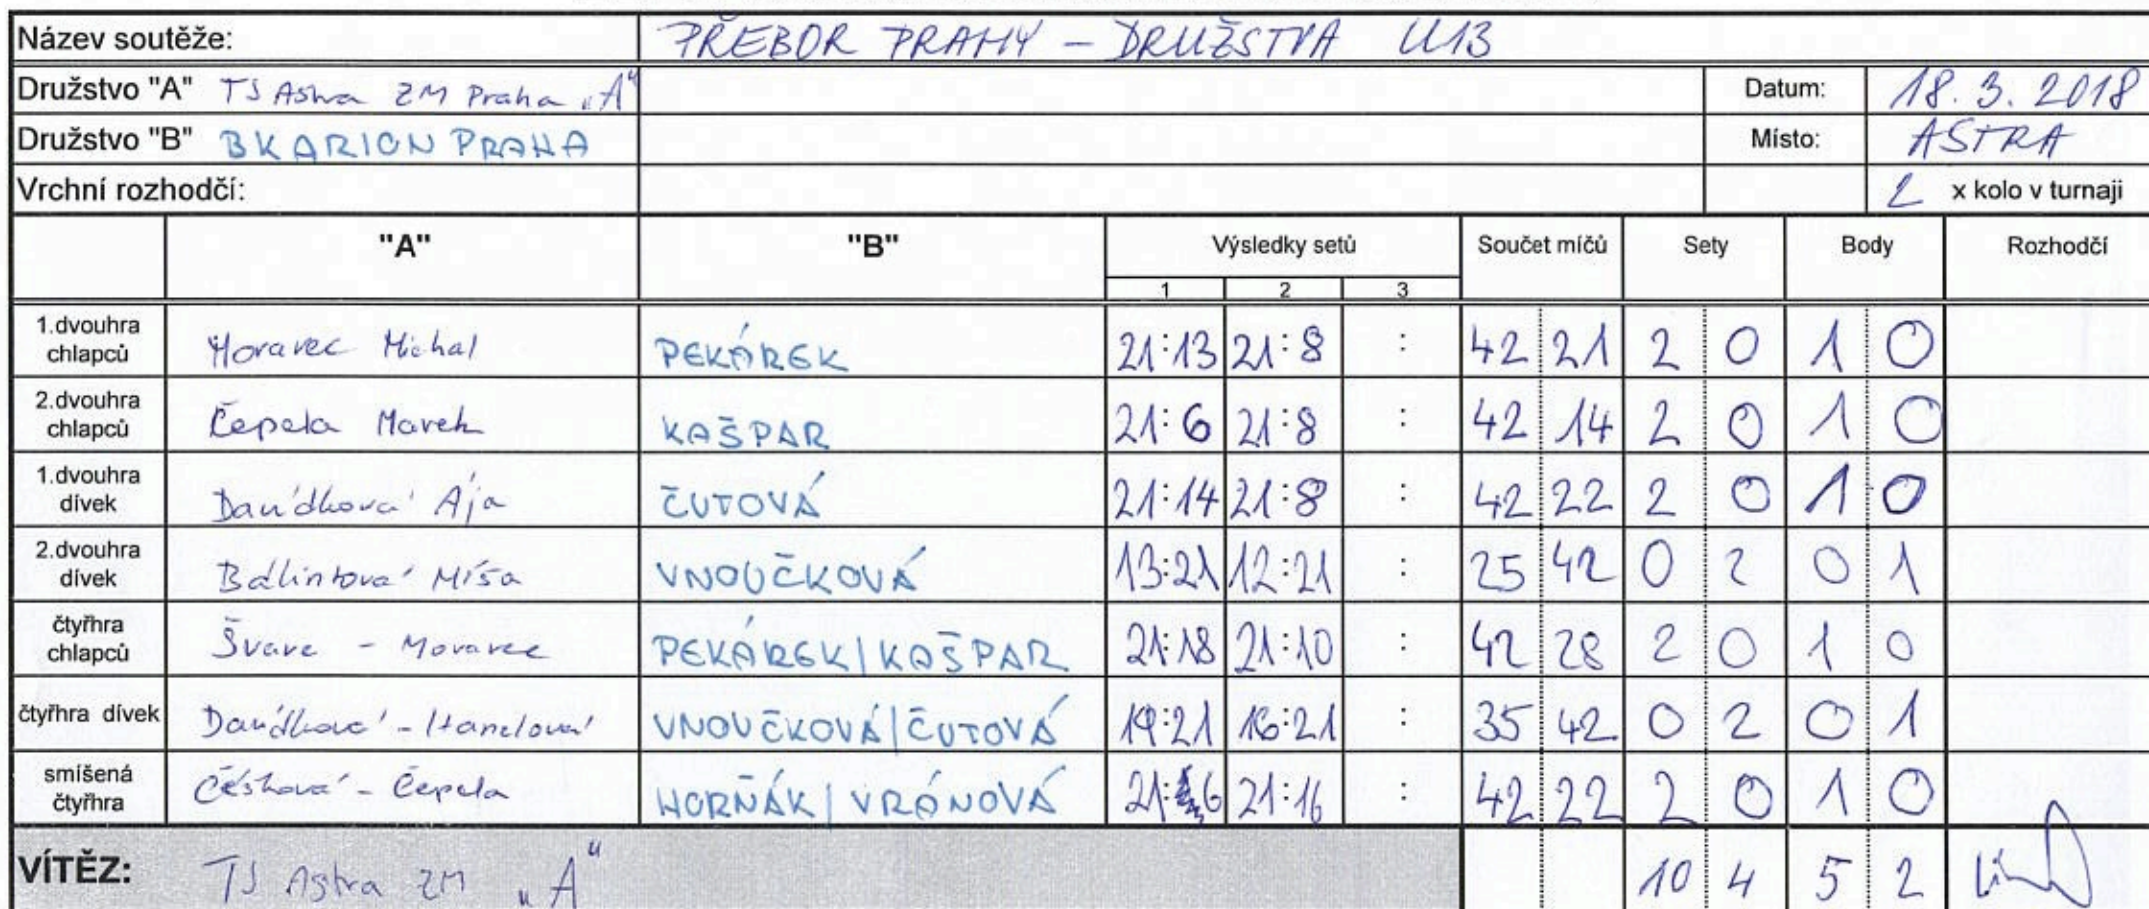 Název soutěže: PŘEBOR PRAHY - DRUŽSTVA U13
Družstvo "A" TJ Astra ZM Praha „A" Datum: 18. 3. 2018
Družstvo "B" BKARION PRAHA Místo: ASTRA
Vrchní rozhodčí: 2 x kolo v turnaji
"A" "B" Výsledky setů Součet míčů Sety Body Rozhodčí
1 2 3
1.dvouhra chlapců Moravec Michal PEKÁREK 21:13 21:8 : 42 21 2 0 1 0
2.dvouhra chlapců Čepela Marek KAŠPAR 21:6 21:8 : 42 14 2 0 1 0
1.dvouhra dívek Davídková Ája ČUTOVÁ 21:14 21:8 : 42 22 2 0 1 0
2.dvouhra dívek Bálintová Míša VNOUČKOVÁ 13:21 12:21 : 25 42 0 2 0 1
čtyřhra chlapců Švarc - Moravec PEKÁREK/KAŠPAR 21:18 21:10 : 42 28 2 0 1 0
čtyřhra dívek Davídková - Hanelová VNOUČKOVÁ/ČUTOVÁ 19:21 16:21 : 35 42 0 2 0 1
smíšená čtyřhra Čepela HORŇÁK/VRÁNOVÁ 21:6 21:16 : 42 22 2 0 1 0
VÍTĚZ: TJ Astra ZM „A" 10 4 5 2